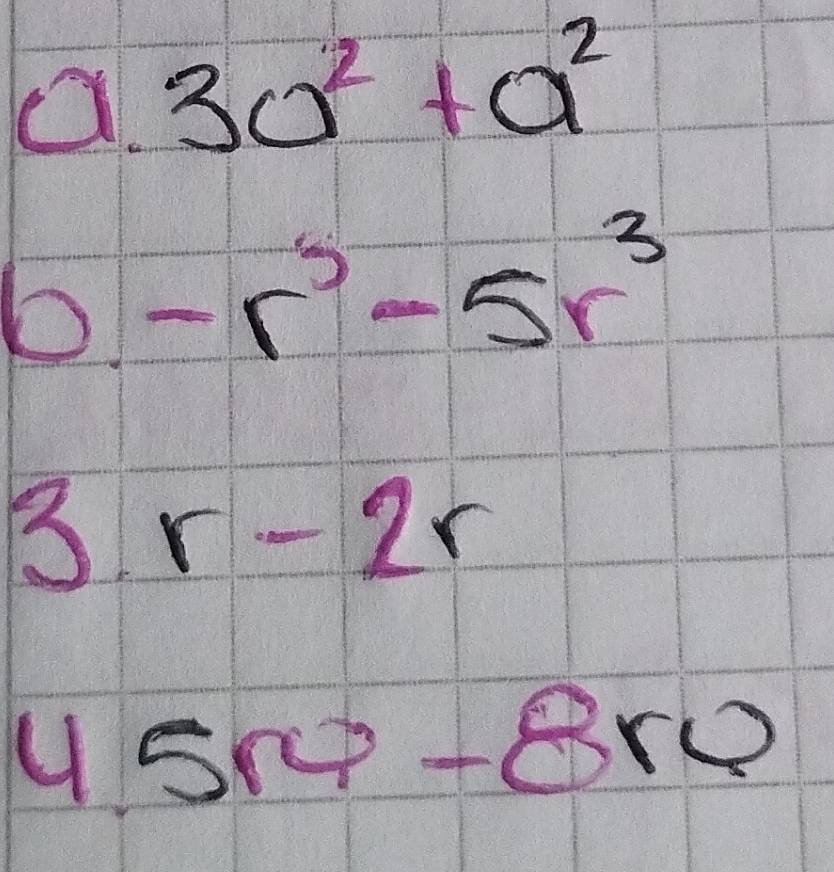 a. 3a² + a²
b. - r³ - 5r³
3. r - 2r
4. 5rq - 8rq